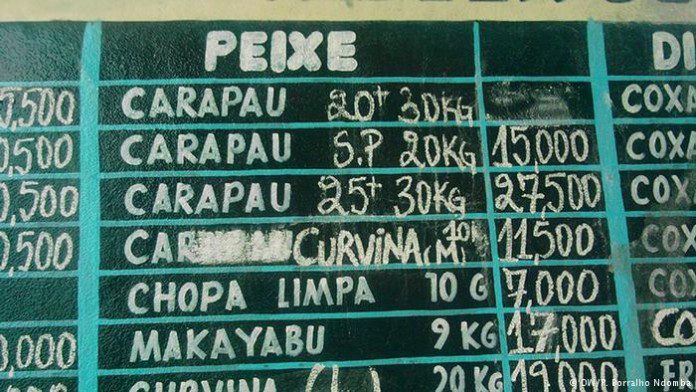 PEIXE DI
0,500 CARAPAU 20+ 30KG COX
0,500 CARAPAU S.P 20KG 15,000 COXA
0,500 CARAPAU 25+ 30KG 27,500 COX
0,500 CAR CURVINA (M) 10K 11,500 COX
CHOPA LIMPA 10 G 7,000 COX
0,000 MAKAYABU 9 KG 17,000 CO
CURVINA (L) 20KG 19,000 FR
© DW/P. Borralho Ndomba